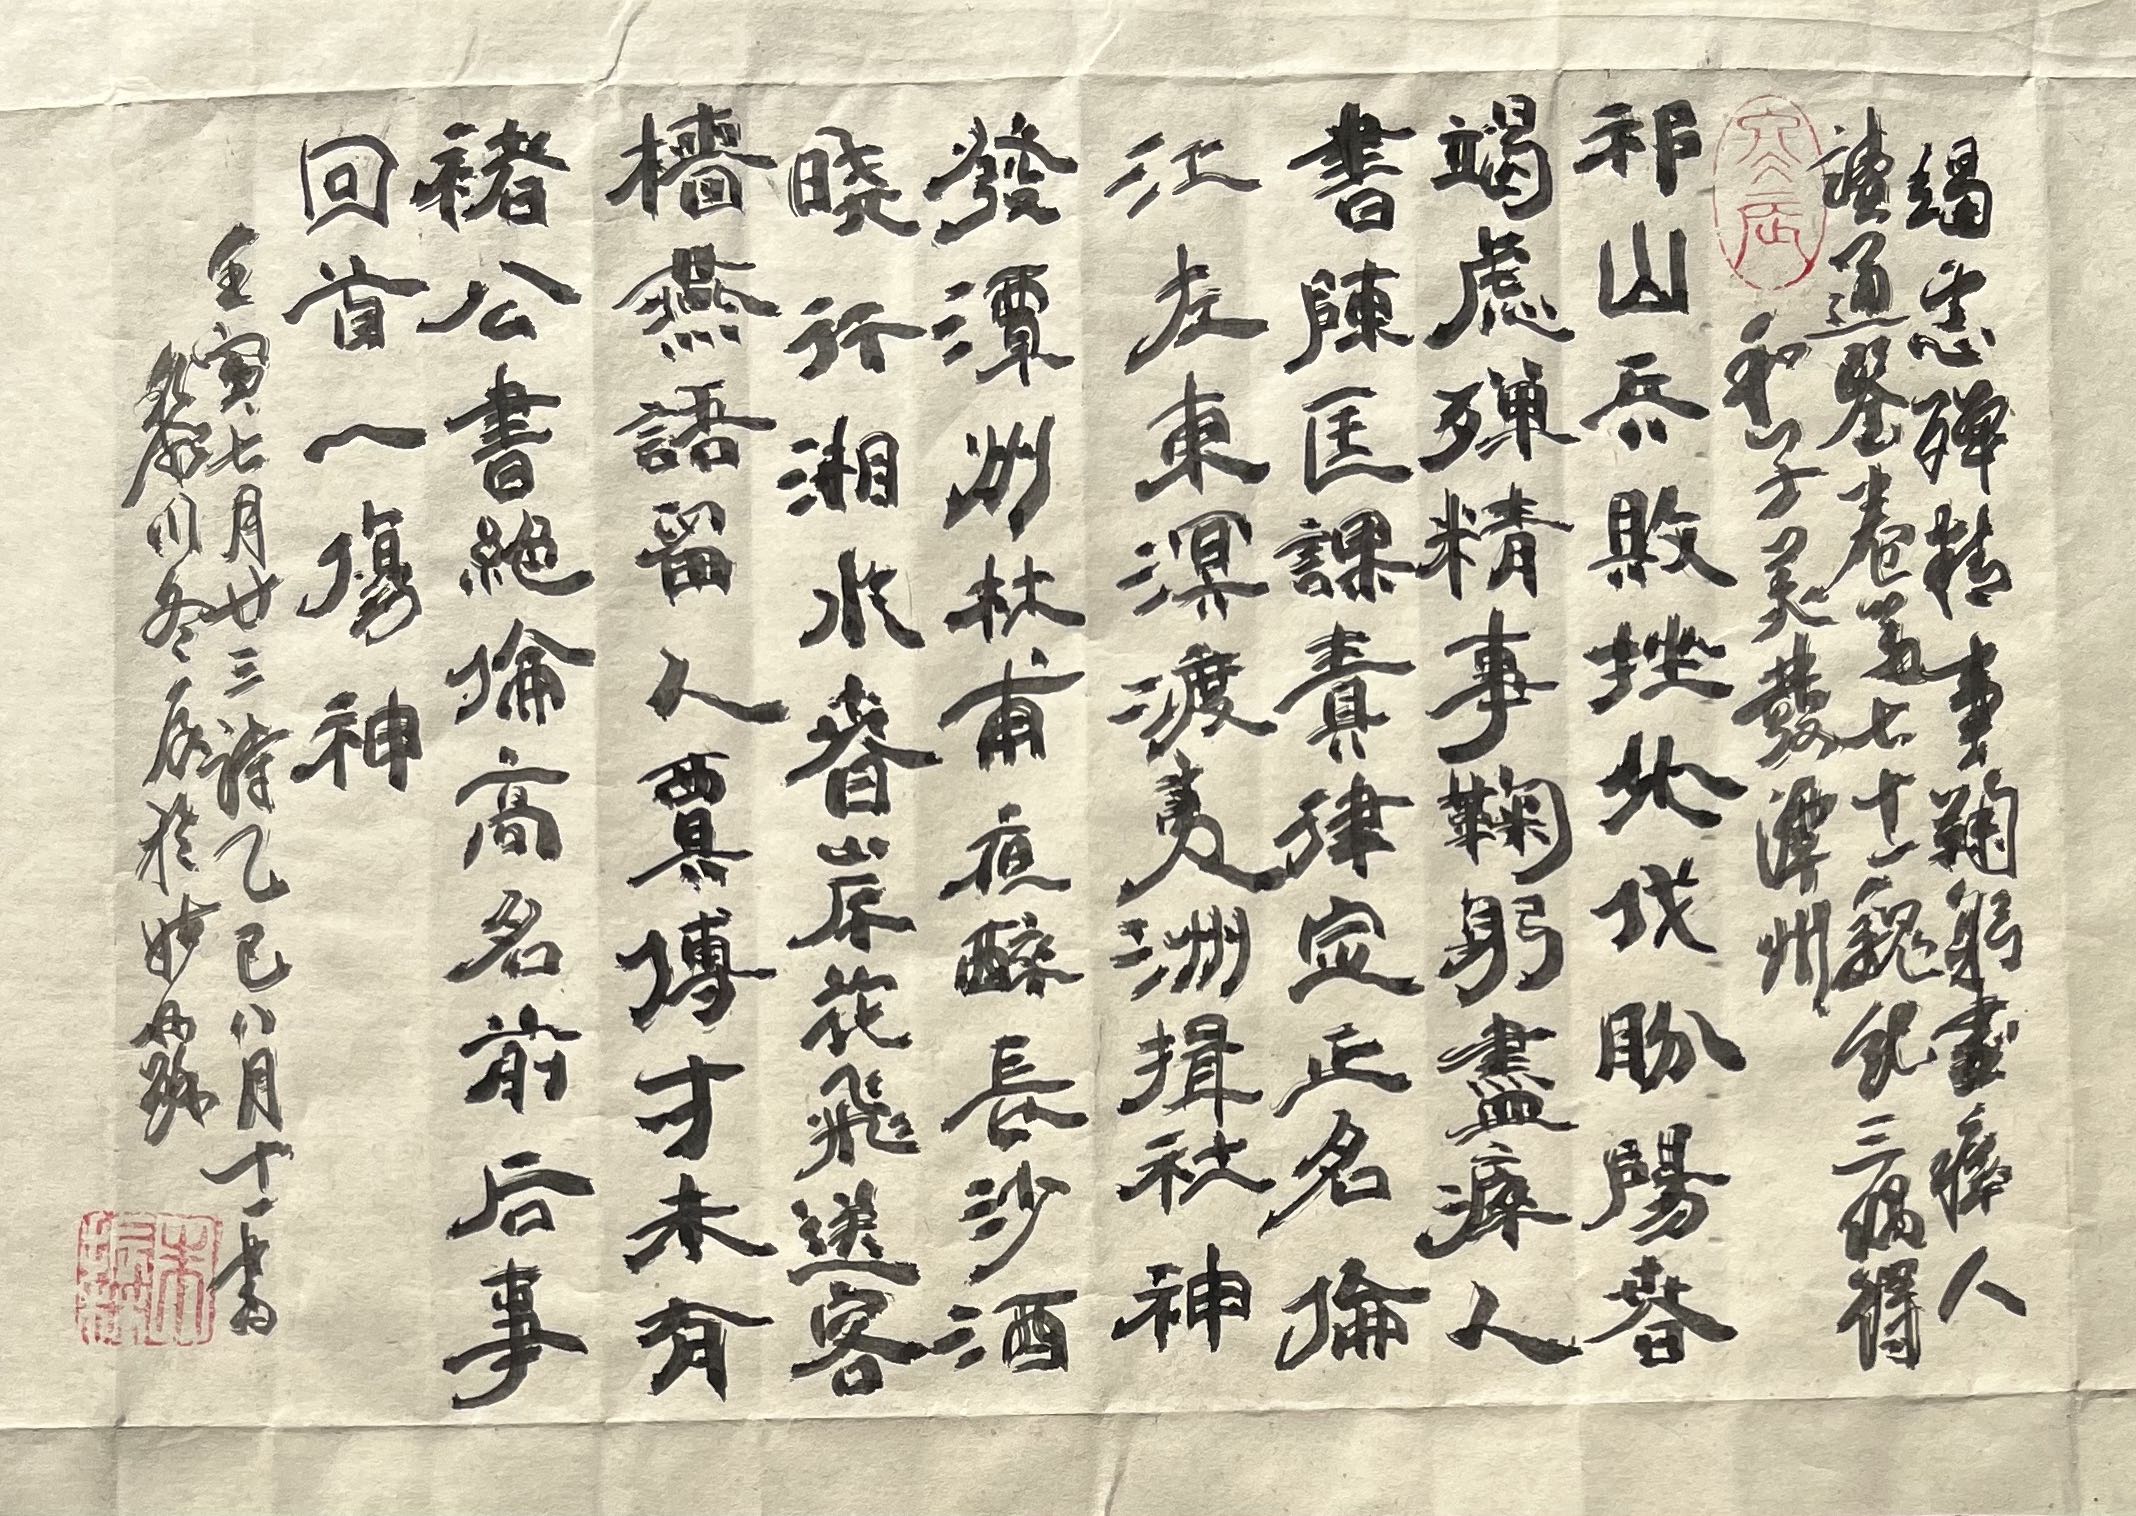 竭忠殫精事鞠躬盡瘁人
讀通鑒卷第七十一魏紀三偶得
和子美發潭州
祁山兵敗挫北伐盼陽春
竭慮殫精事鞠躬盡瘁人
書陳匡課責律定正名倫
江左東溟渡夷洲揖社神
發潭州杜甫夜醉長沙酒
曉行湘水春岸花飛送客
檣燕語留人賈傅才未有
褚公書絕倫高名前后事
回首一傷神
壬寅七月廿三詩乙巳八月十一書
川冬 於